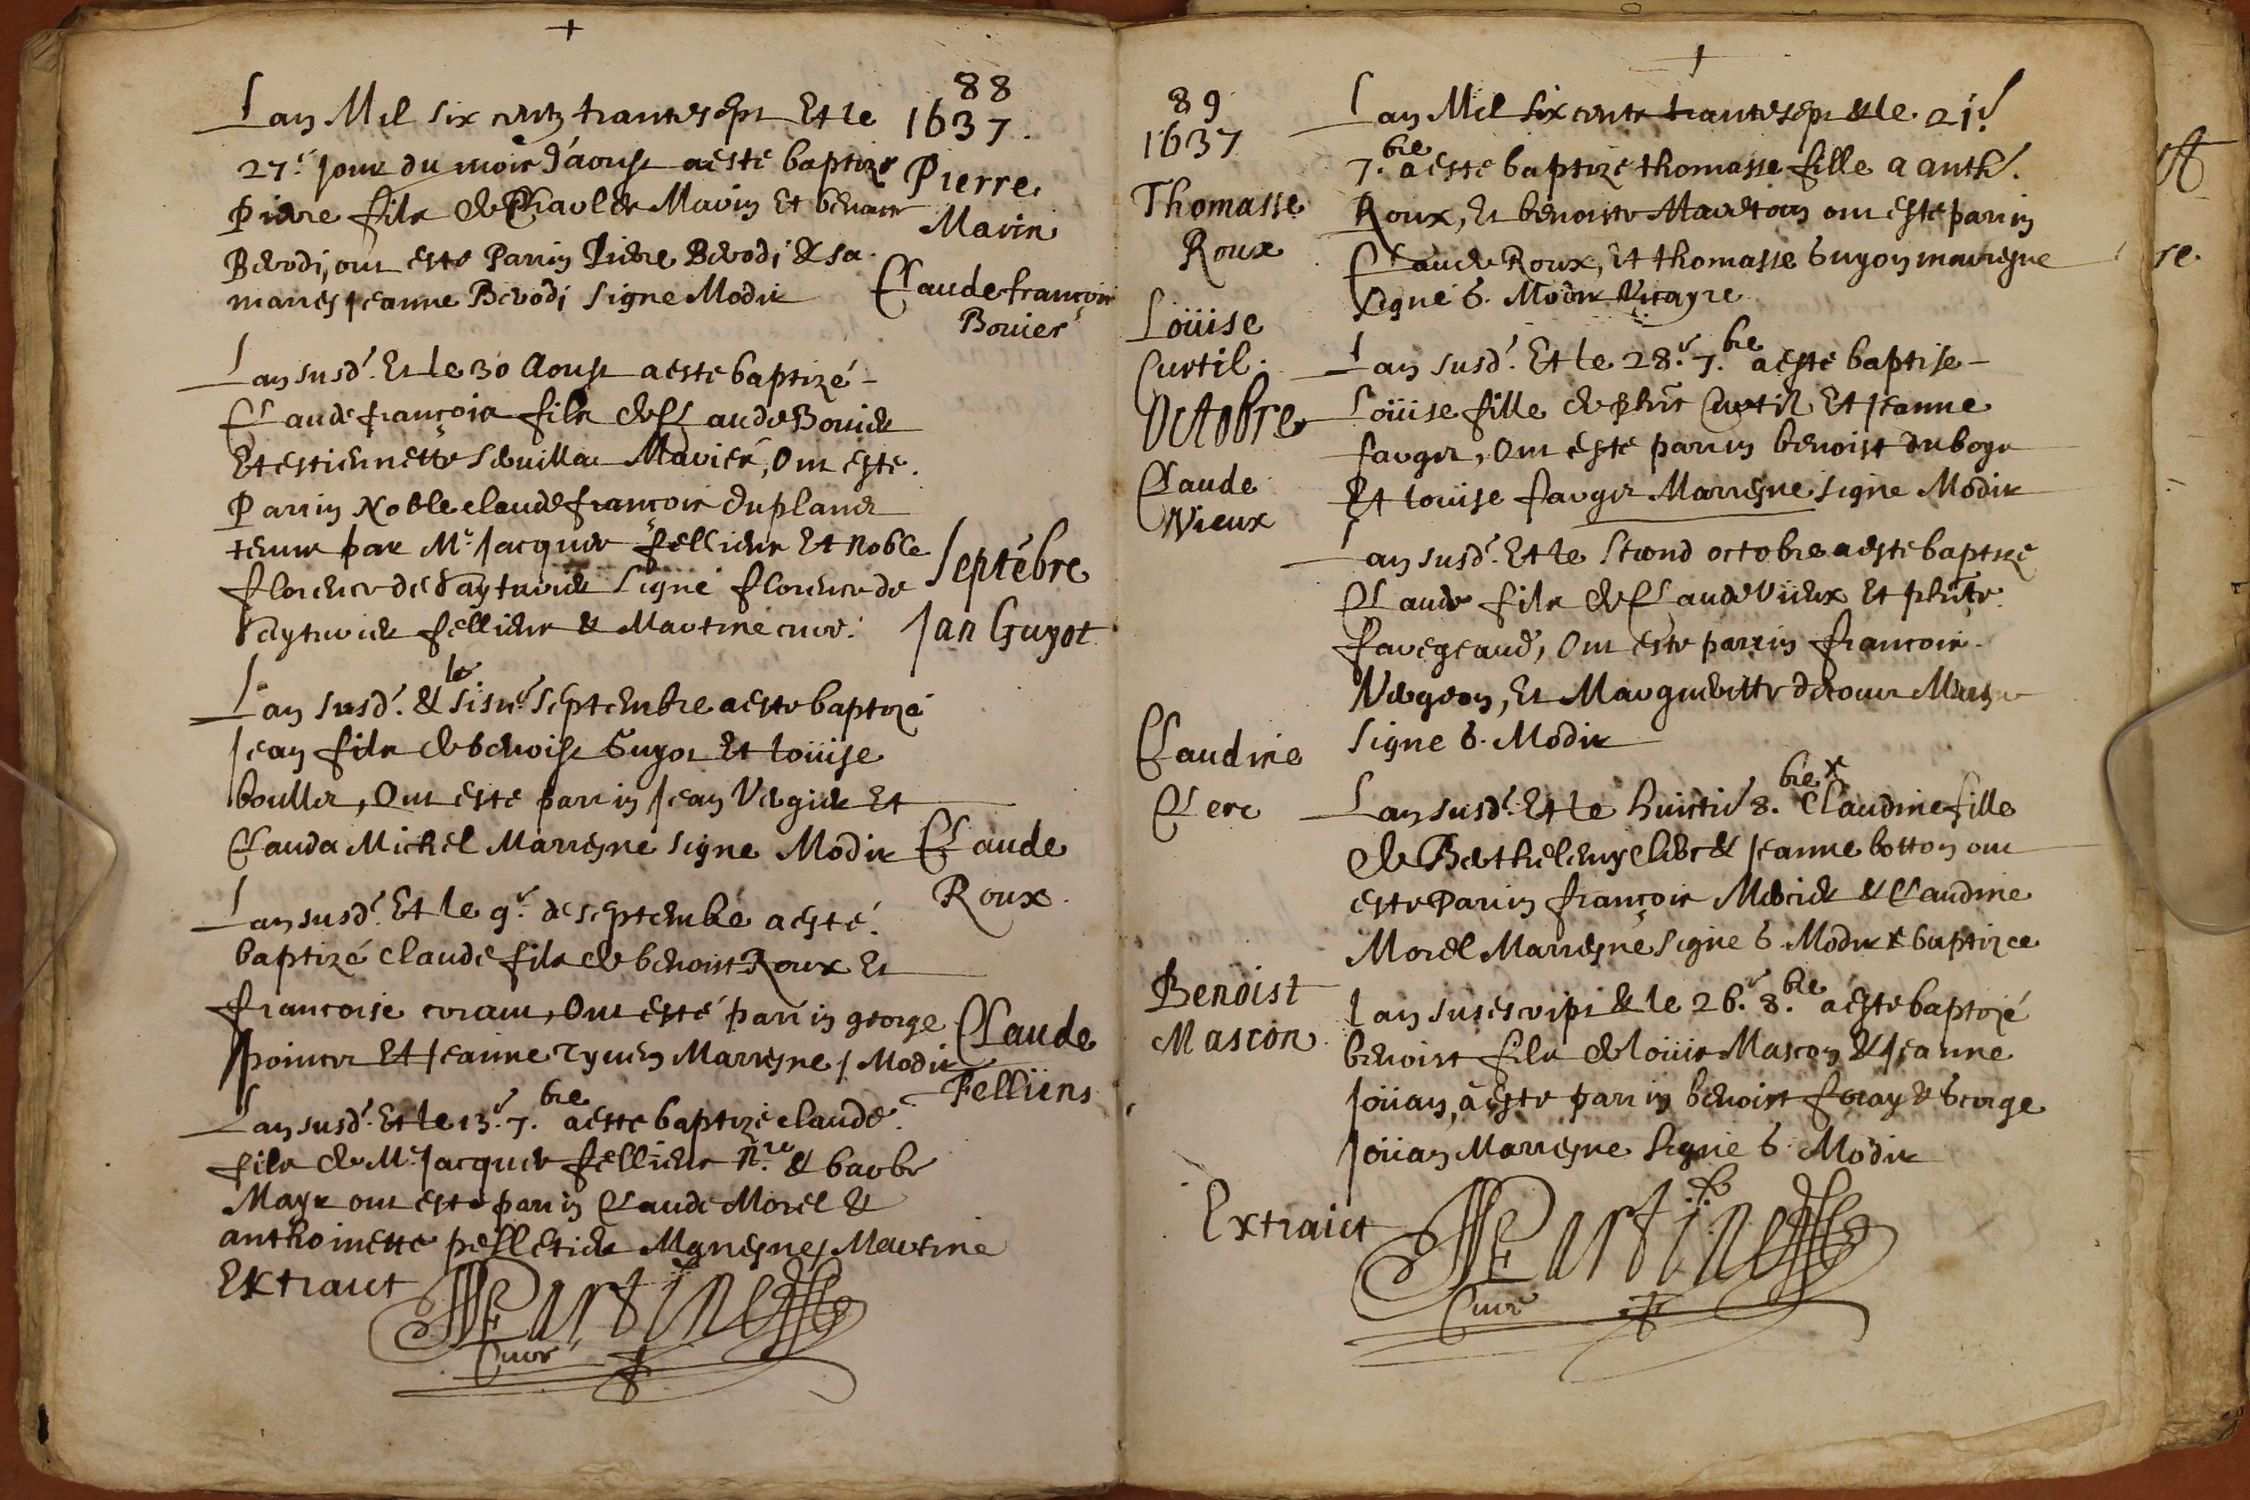 88
1637.
Lan Mil six centz trante sept Et le
27.e Jour du mois d'aoust a esté baptizé
Pierre
Marin
Pierre filz de Charles Marin Et benoite
Berodj, ont esté Parrin Pierre Berodj & sa
marres Jeanne Berodj signe Modix
Claude francois
Bouier
Lan susd. Et le 30 Aoust a esté baptizé
Claude francois filz de Claude Bouier
Et estiennette Mariés, Ont esté.
Parrin Noble claude francois duplanet
tenur par Me. Jacques felliens Et Noble
florence de signé florence de
felliens & Martine curé.
Septébre
Jan Guyot
Lan susd. & le sisie. Septembre a este baptizé
Jean filz de benoist Guyot Et loüise
boullet, Ont esté parrin Jean Vergier Et
Clauda Michel Marresne signe Modix
Claude
Roux.
Lan susd. Et le 9.e de septembré a esté.
baptizé claude filz de benoist Roux Et
francoise Ont esté parrin george
pointet Et Jeanne Marresne / Modix
Claude
Felliens
Lan susd. Et le 13.e 7.bre a esté baptizé claude.
filz de Me. Jacques felliens n.re & barbe
Maye ont esté parrin Claude Morel &
anthoinette pelletier Maresne, Martine
Extraict
Martine
Curé
89
1637
Lan Mil six centz trante sept & le. 21e
7.bre a esté baptizé thomasse fille a anth.
Thomasse
Roux
Roux, Et benoiste ont este parrin
Claude Roux, Et thomasse Guyon marresne
signé G. Modix Vicayre
Loüise
Curtil.
Lan susd. Et le 28.e 7.bre a esté baptise
Loüise fille de phīe Curtil Et Jeanne
farger, Ont esté parrin benoist duboys
Et loüise farger Marresne signe Modix
Octobre
Claude
Vieux
Lan susd. Et le second octobre a esté baptizé
Claude filz de Claude Vieux Et phīte
favegeaud, Ont este parrin francois
Vergeon, Et Margueritte
signe G. Modix
Claudine
Clerc
Lan susd. Et le huictie 8.bre x Claudine fille
de Berthelemy Clerc & Jeanne botton ont
este Parrin francois Mercier & Claudine
Morel Marresne signe G. Modix x baptizee
Benoist
Mascon
Lan susescript & le 26.e 8.bre a este baptizé
benoist filz de loüis Mascon & Jeanne
Joüan, a este parrin benoist foray & George
Joüan Marresne signe G. Modix
Extraict
Martine
Curé